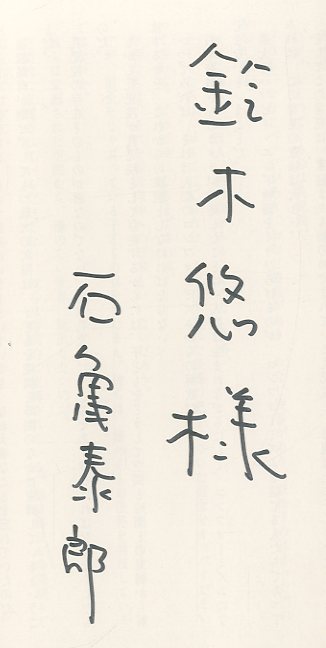 鈴木悠様
石亀泰郎